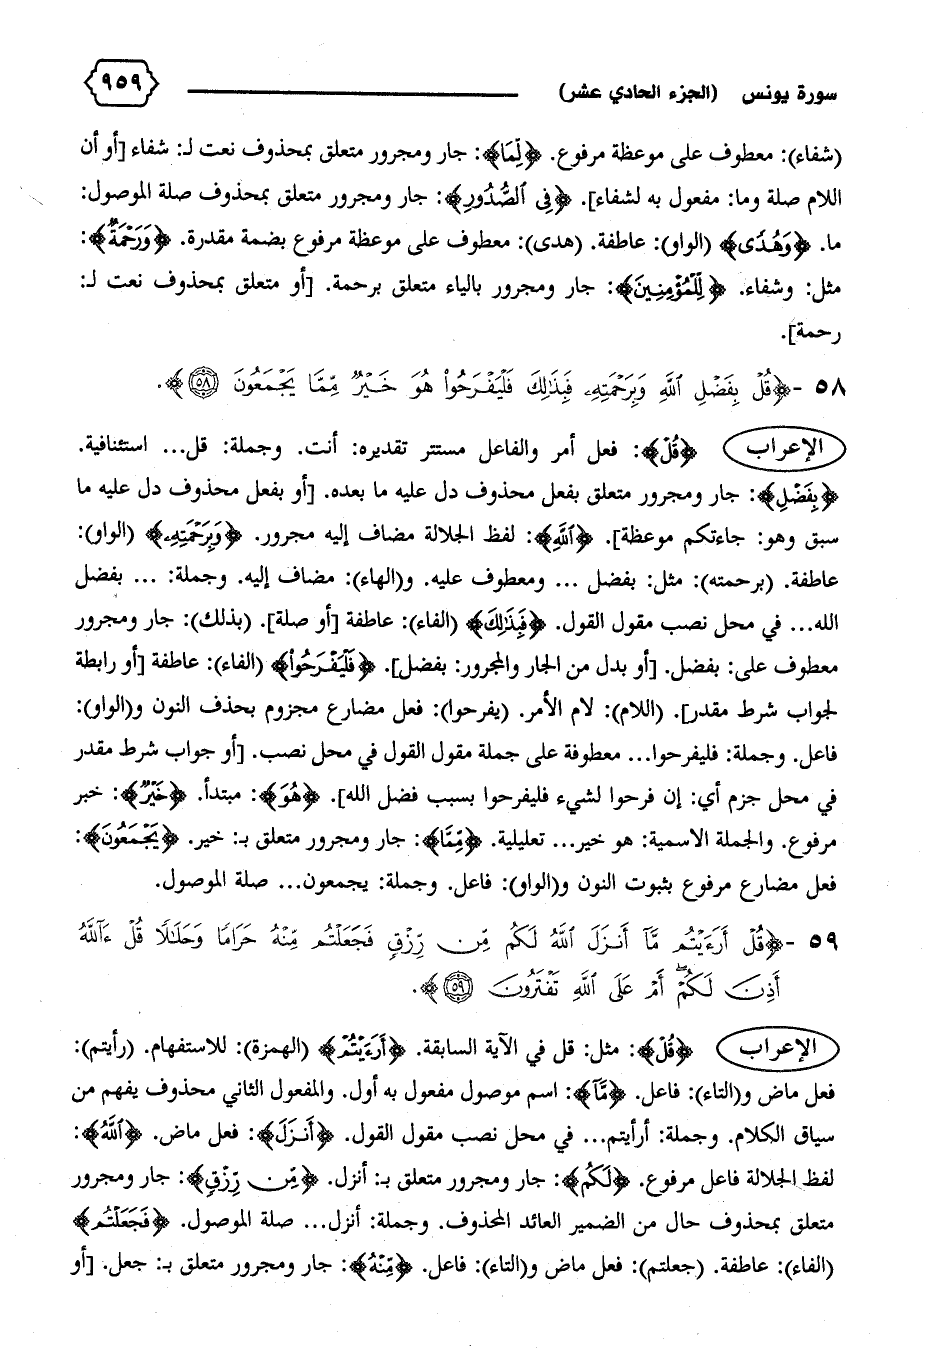 سورة يونس (الجزء الحادي عشر) ٩٥٩
(شفاء): معطوف على موعظة مرفوع. ﴿لِّمَا﴾: جار ومجرور متعلق بمحذوف نعت لـ: شفاء [أو أن
اللام صلة وما: مفعول به لشفاء]. ﴿فِى ٱلصُّدُورِ﴾: جار ومجرور متعلق بمحذوف صلة الموصول:
ما. ﴿وَهُدًى﴾ (الواو): عاطفة. (هدى): معطوف على موعظة مرفوع بضمة مقدرة. ﴿وَرَحْمَةٌ﴾:
مثل: وشفاء. ﴿لِّلْمُؤْمِنِينَ﴾: جار ومجرور بالياء متعلق برحمة. [أو متعلق بمحذوف نعت لـ:
رحمة].
٥٨ -﴿قُلْ بِفَضْلِ ٱللَّهِ وَبِرَحْمَتِهِۦ فَبِذَٰلِكَ فَلْيَفْرَحُوا۟ هُوَ خَيْرٌ مِّمَّا يَجْمَعُونَ ٥٨﴾.
الإعراب ﴿قُلْ﴾: فعل أمر والفاعل مستتر تقديره: أنت. وجملة: قل... استئنافية.
﴿بِفَضْلِ﴾: جار ومجرور متعلق بفعل محذوف دل عليه ما بعده. [أو بفعل محذوف دل عليه ما
سبق وهو: جاءتكم موعظة]. ﴿ٱللَّهِ﴾: لفظ الجلالة مضاف إليه مجرور. ﴿وَبِرَحْمَتِهِۦ﴾ (الواو):
عاطفة. (برحمته): مثل: بفضل ... ومعطوف عليه. و(الهاء): مضاف إليه. وجملة: ... بفضل
الله... في محل نصب مقول القول. ﴿فَبِذَٰلِكَ﴾ (الفاء): عاطفة [أو صلة]. (بذلك): جار ومجرور
معطوف على: بفضل. [أو بدل من الجار والمجرور: بفضل]. ﴿فَلْيَفْرَحُوا۟﴾ (الفاء): عاطفة [أو رابطة
لجواب شرط مقدر]. (اللام): لام الأمر. (يفرحوا): فعل مضارع مجزوم بحذف النون و(الواو):
فاعل. وجملة: فليفرحوا... معطوفة على جملة مقول القول في محل نصب. [أو جواب شرط مقدر
في محل جزم أي: إن فرحوا لشيء فليفرحوا بسبب فضل الله]. ﴿هُوَ﴾: مبتدأ. ﴿خَيْرٌ﴾: خبر
مرفوع. والجملة الاسمية: هو خير... تعليلية. ﴿مِّمَّا﴾: جار ومجرور متعلق بـ: خير. ﴿يَجْمَعُونَ﴾:
فعل مضارع مرفوع بثبوت النون و(الواو): فاعل. وجملة: يجمعون... صلة الموصول.
٥٩ -﴿قُلْ أَرَءَيْتُم مَّآ أَنزَلَ ٱللَّهُ لَكُم مِّن رِّزْقٍ فَجَعَلْتُم مِّنْهُ حَرَامًا وَحَلَٰلًا قُلْ ءَآللَّهُ
أَذِنَ لَكُمْ ۖ أَمْ عَلَى ٱللَّهِ تَفْتَرُونَ ٥٩﴾.
الإعراب ﴿قُلْ﴾: مثل: قل في الآية السابقة. ﴿أَرَءَيْتُم﴾ (الهمزة): للاستفهام. (رأيتم):
فعل ماض و(التاء): فاعل. ﴿مَّآ﴾: اسم موصول مفعول به أول. والمفعول الثاني محذوف يفهم من
سياق الكلام. وجملة: أرأيتم... في محل نصب مقول القول. ﴿أَنزَلَ﴾: فعل ماض. ﴿ٱللَّهُ﴾:
لفظ الجلالة فاعل مرفوع. ﴿لَكُم﴾: جار ومجرور متعلق بـ: أنزل. ﴿مِّن رِّزْقٍ﴾: جار ومجرور
متعلق بمحذوف حال من الضمير العائد المحذوف. وجملة: أنزل... صلة الموصول. ﴿فَجَعَلْتُم﴾
(الفاء): عاطفة. (جعلتم): فعل ماض و(التاء): فاعل. ﴿مِّنْهُ﴾: جار ومجرور متعلق بـ: جعل. [أو